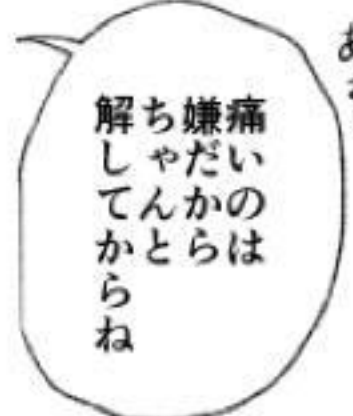 痛いのは
嫌だから
ちゃんと
解してからね